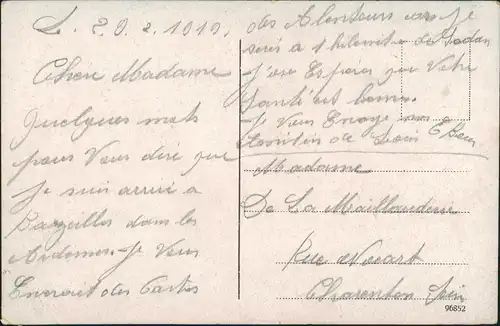 L. 20.2.1919.
Chère Madame
Quelques mots
pour Vous dire que
je suis arrivé a
Bazeilles dans les
Ardennes. Je Vous
Enverait des Cartes
des Alentours car Je
suis a 1 kilomètre de Sedan
J'ose Espérer que Votre
Santé est bonne.
Je Vous Envoye mes
de Loin
Madame
De La Maillauderie
Rue Nocart
Charenton Sein
96852